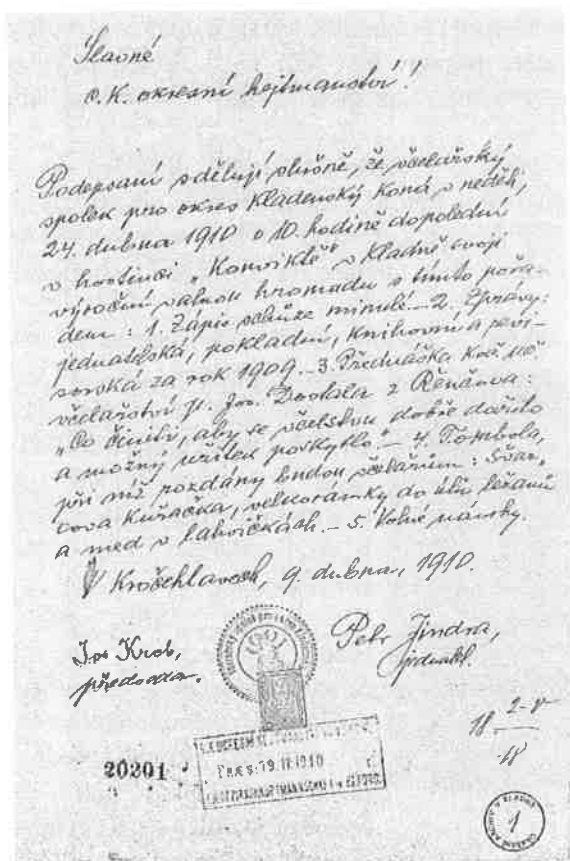 Slavné
c. K. okresní hejtmanství!
Podepsaní sdělují slušně, že včelařský
spolek pro okres Kladenský koná v neděli,
24. dubna 1910 o 10. hodině dopolední
v hostinci „Konviktě" v Kladně svoji
výroční valnou hromadu s tímto pořa-
dem: 1. Zápis schůze minulé. – 2. Zprávy:
jednatelská, pokladní, knihovní a revi-
sorská za rok 1909. – 3. Přednáška koč. uč.
včelařství p. Jos.
„Co činiti, aby se včelstvu dobře dařilo
a možný užitek poskytlo." – 4. Tombola,
při níž rozdány budou včelařům:
kuřačka, velkorámky do úlů ležanů
a med v lahvičkách. – 5. Volné návrhy.
V Kročehlavech, 9. dubna, 1910.
Jos Krob,
předseda.
Petr Jindra,
jednatel.
20201
Praes: 19. IV. 1910
18
1